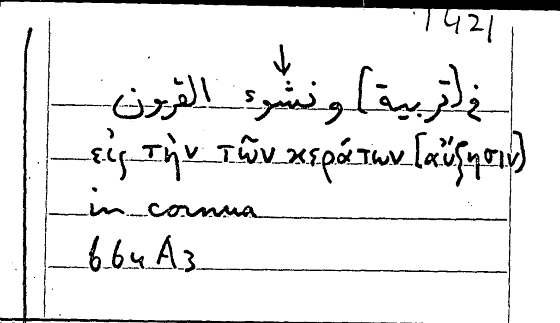 1421
↓
في (تربية] و نشوء القرون
εἰς τὴν τῶν κεράτων [αὔξησιν)
in cornua
664 A3